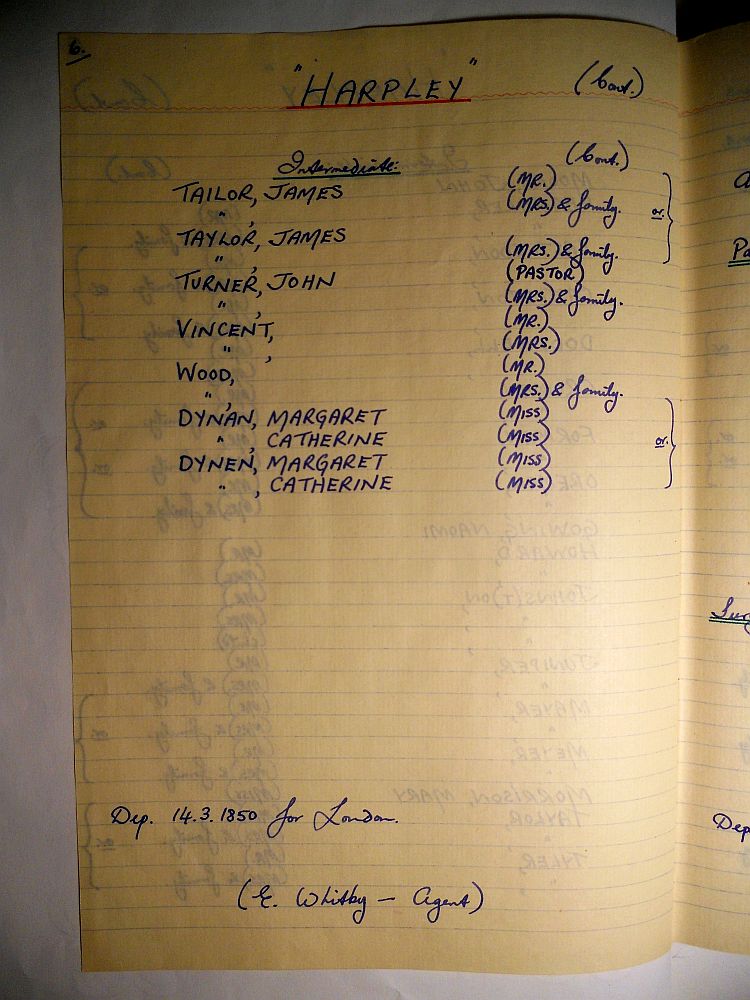 6.
"HARPLEY" (Cont.)
Intermediate: (Cont.)
TAILOR, JAMES (MR.)
" , (MRS.) & family. or.
TAYLOR, JAMES
" , (MRS.) & family.
TURNER, JOHN (PASTOR)
" , (MRS.) & family.
VINCENT, (MR.)
" , (MRS.)
WOOD, (MR.)
" , (MRS.) & family.
DYNAN, MARGARET (MISS)
" , CATHERINE (MISS) or.
DYNEN, MARGARET (MISS)
" , CATHERINE (MISS)
Dep. 14.3.1850 for London.
(E. Whitby — Agent)
Dep